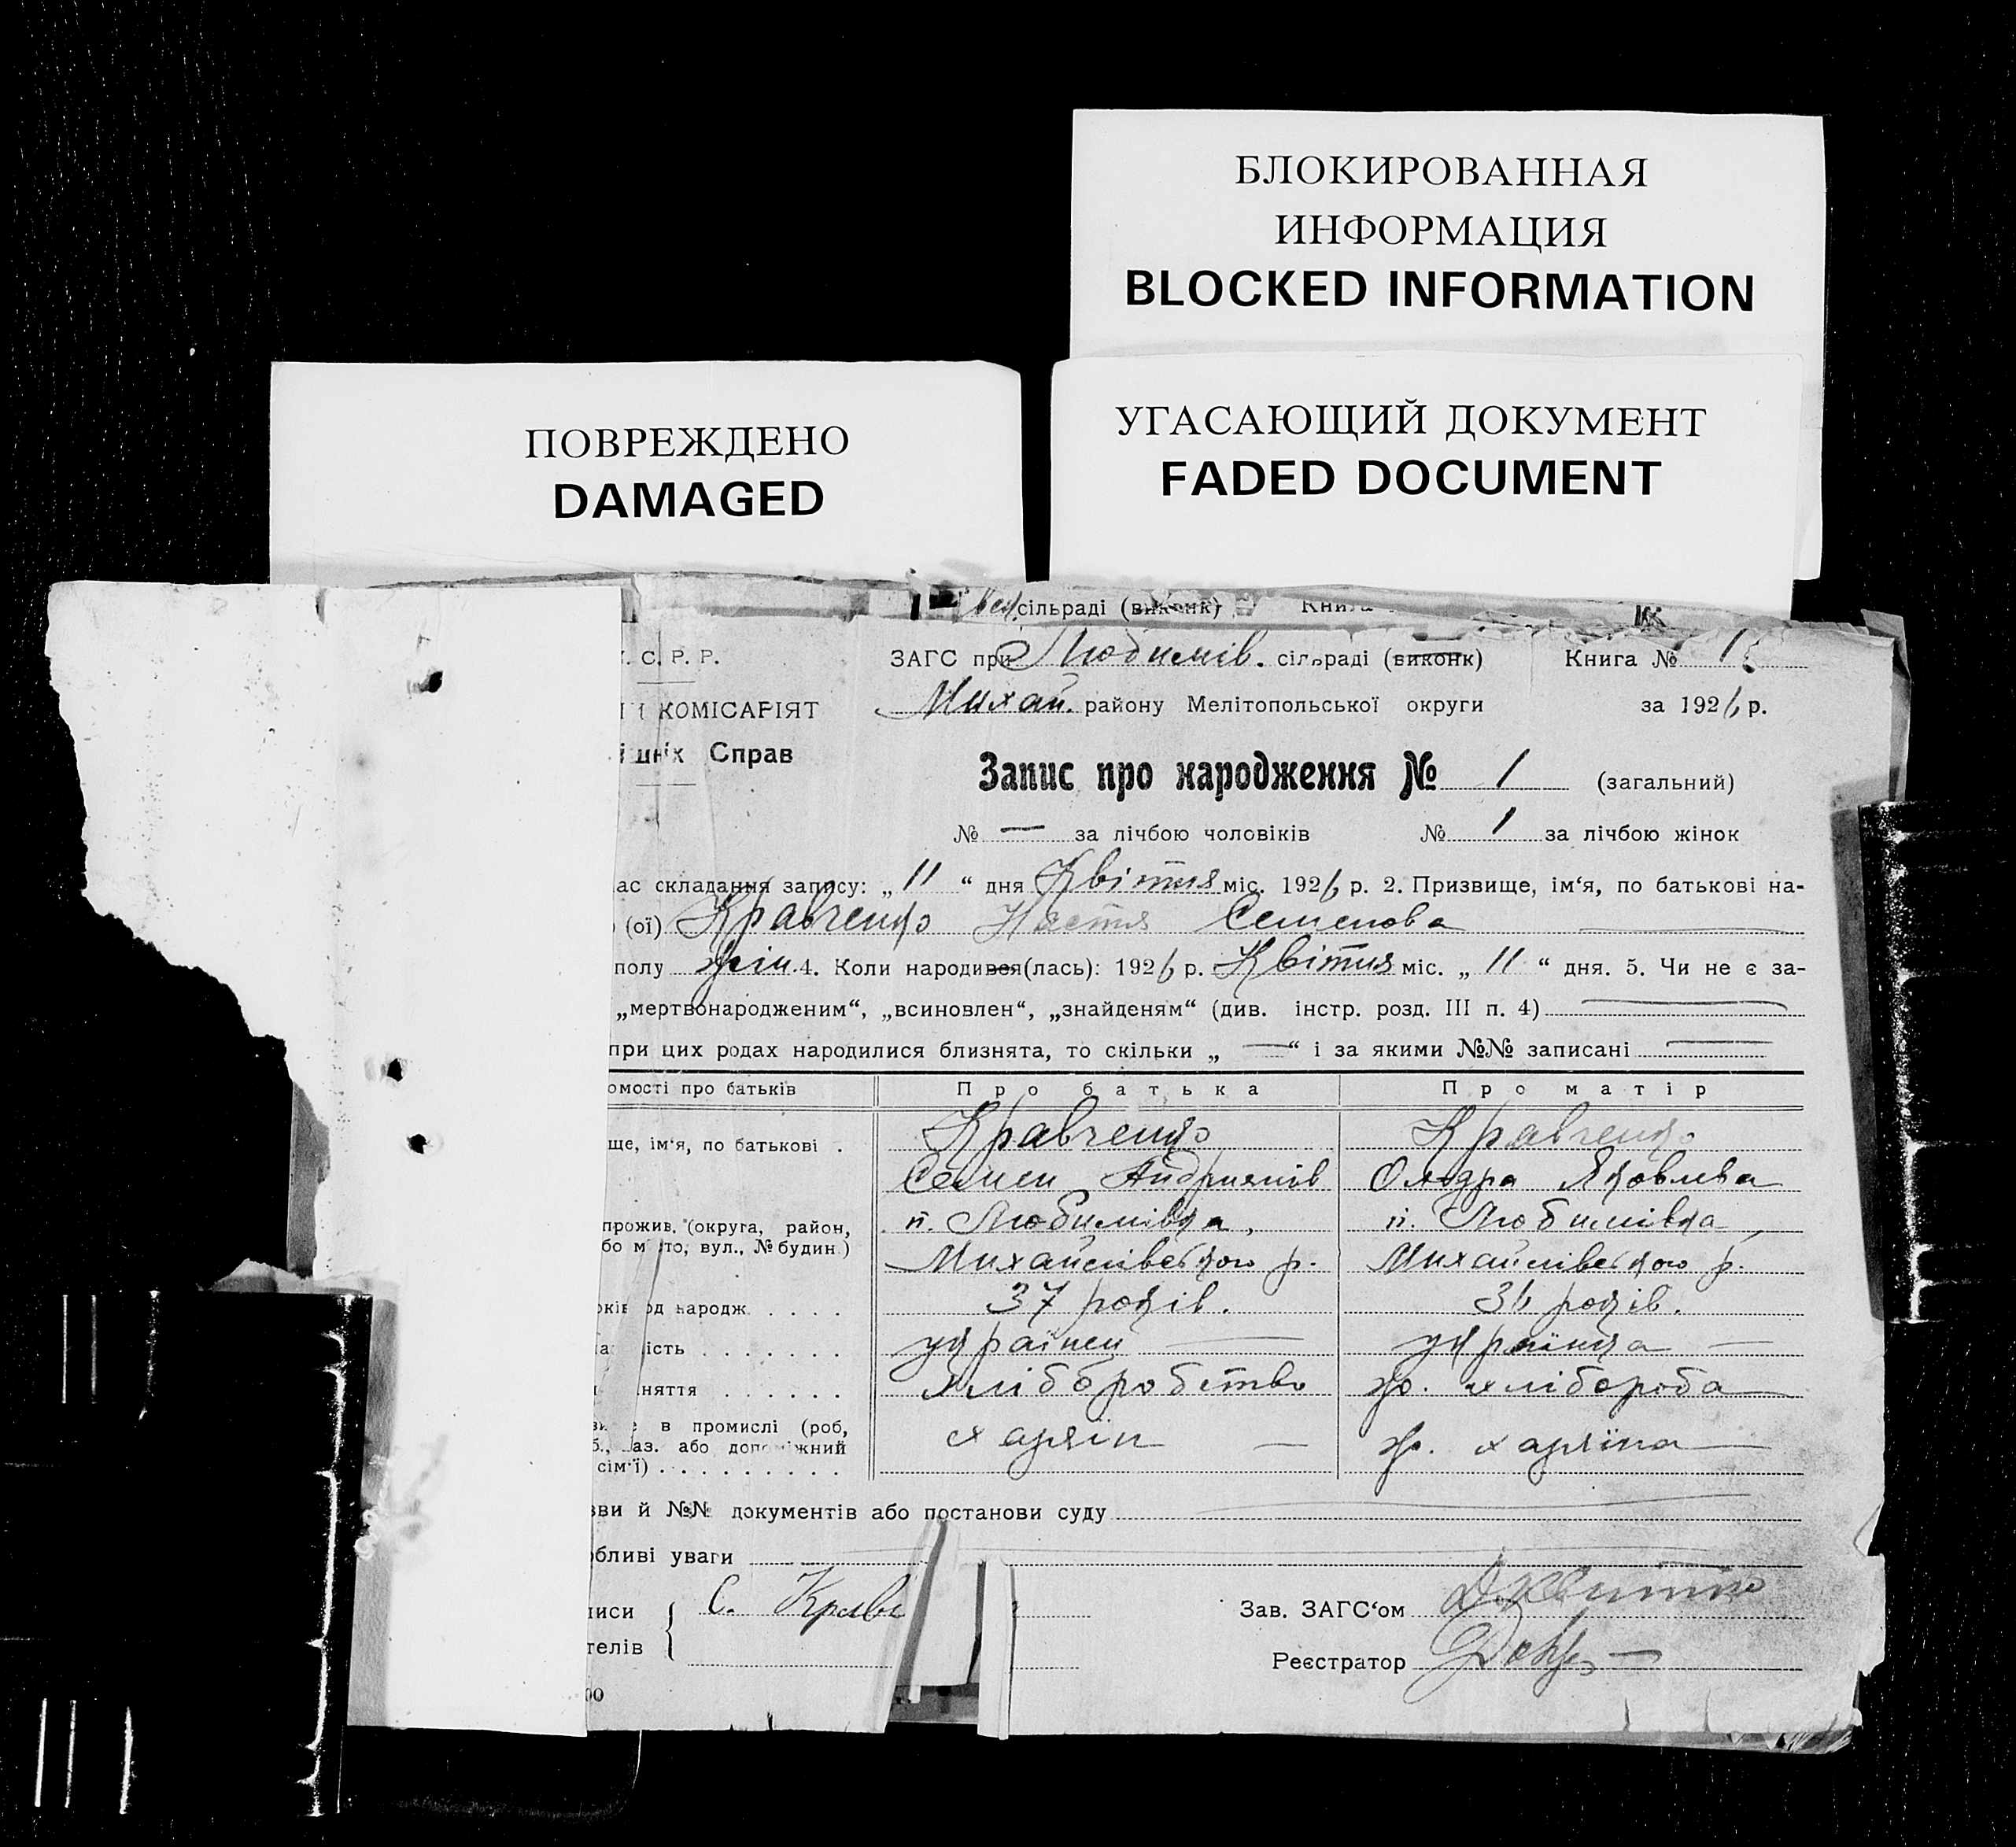 БЛОКИРОВАННАЯ
ИНФОРМАЦИЯ
BLOCKED INFORMATION
ПОВРЕЖДЕНО
DAMAGED
УГАСАЮЩИЙ ДОКУМЕНТ
FADED DOCUMENT
сільраді (виконк)
С. Р. Р.
ЗАГС при Любимів. сільраді (виконк) Книга №
КОМІСАРІЯТ
Михай. району Мелітопольської округи за 1926 р.
Справ
Запис про народження № 1 (загальний)
№ — за лічбою чоловіків № 1 за лічбою жінок
ас складання запису: „ 11 “ дня Квітня міс. 1926 р. 2. Призвище, ім‘я, по батькові на-
(ої) Кравченко Настя Семенова
полу жін. 4. Коли народився(лась): 1926 р. Квітня міс. „ 11 “ дня. 5. Чи не є за-
„мертвонародженим“, „всиновлен“, „знайденям“ (див. інстр. розд. III п. 4)
при цих родах народилися близнята, то скільки „ — “ і за якими №№ записані
омості про батьків Про батька Про матір
ще, ім‘я, по батькові . Кравченко Кравченко
Семен Андріянів Яковлева
прожив. (округа, район, п. Любимівка, п. Любимівка,
бо місто, вул., № будин.) Михайлівського р. Михайлівського р.
од народж. . . . . 37 років. 36 років.
ість . . . . . . . українец українка
няття . . . . . . хліборобство ж. хлібороба
в промислі (роб,
аз. або допоміжний хазяін ж. хазяїна
сім‘ї) . . . . . . . . .
зви й №№ документів або постанови суду
обливі уваги
писи С. Кравч
телів
Зав. ЗАГС‘ом
Реєстратор
00